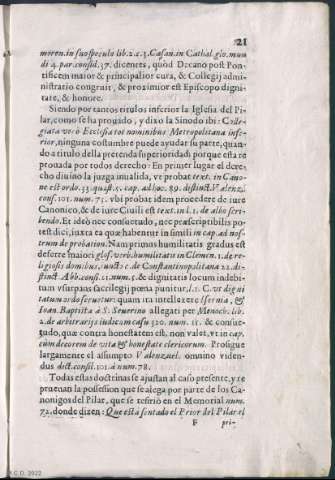 21
moren. in suo speculo lib. 2. c. 3. Casan. in Cathal. glo. mun
di 4. par. consid. 37. dicentes, quòd Decano post Pon-
tificem maior & principalior cura, & Collegij admi-
nistratio congruit, & proximior est Episcopo digni-
tate, & honore.
Siendo por tantos titulos inferior la Iglesia del Pi-
lar, como se ha prouado, y dixo la Sinodo ibi: Colle-
giata verò Ecclesia tot nominibus Metropolitana infe-
rior, ninguna costumbre puede ayudar su parte, quan-
do a titulo della pretenda superioridad: porque esta re
prouada por todos derecho: En primer lugar el dere-
cho diuino la juzga inualida, ve probat text. in Cano-
ne est ordo. 33. quæst. 5. cap. ad hoc. 89. distinct. Valenzu.
cons. 101. num. 75. vbi probat idem procedere de iure
Canonico, & de iure Ciuili est text. in l. 1. de albo scri-
bendo. Et ideò nec consuetudo, nec præscriptibilis po-
test dici, iuxta ea quæ habentur in simili in cap. ad nos-
trum de probation. Nam primus humilitatis gradus est
deferre maiori glos. verb. humilitatis in Clemen. 1. de re-
ligiosis domibus, iuncto c. de Constantinopolitana 22. di-
stinct. Abb. cons. 11. num. 5. & dignitatis locum indebi-
tum vsurpans sacrilegij poena punitur, l. 1. C. vt digni
tatum ordo seruetur: quam ita intellexere Isernia, &
Ioan. Baptista à S. Seuerino allegati per Menoch. lib.
2. de arbitrarijs iudicum casu 320. num. 11. & consue-
tudo, quæ contra honestatem est, non valet, vt in cap.
cùm decorem de vita & honestate clericorum. Prosigue
largamente el assumpto Valenzuel. omnino viden-
dus dict. consil. 101. à num. 78.
Todas estas doctrinas se ajustan al caso presente, y re
prueuan la possession que se alega por parte de los Ca-
nonigos del Pilar, que se refirió en el Memorial num.
72. donde dizen: Que està sentado el Prior del Pilar el
F pri-
R.C.D. 2022